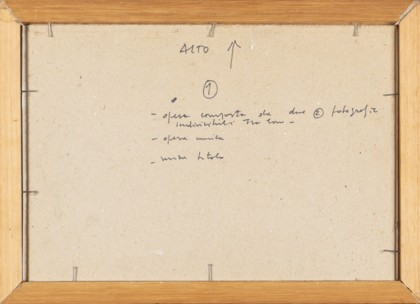 ALTO ↑
①
- opera composta da due ② fotografie
indivisibili tra loro -
- opera unica
- senza titolo